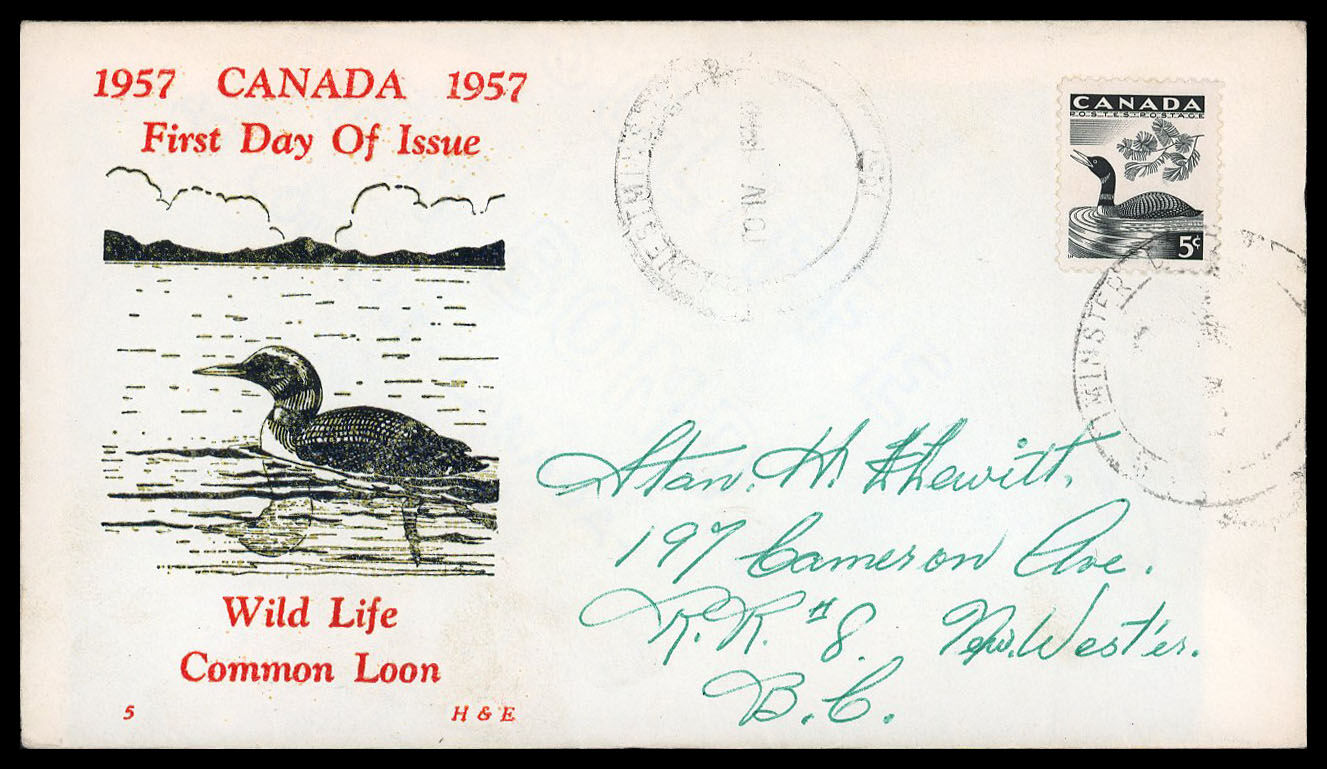 1957 CANADA 1957
First Day Of Issue
Wild Life
Common Loon
5 H & E
CANADA
POSTES-POSTAGE
5¢
Stan. H. Hewitt.
197 Cameron Ave.
R.R. #8. New.West'er.
B.C.